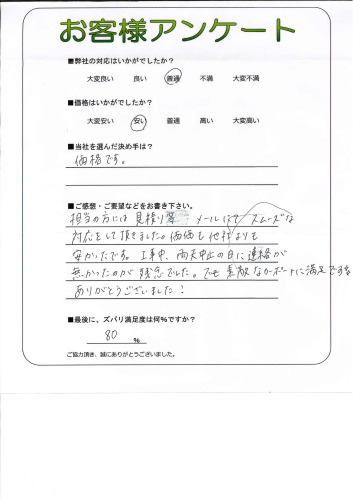 お客様アンケート
■弊社の対応はいかがでしたか？
大変良い 良い 普通 不満 大変不満
■価格はいかがでしたか？
大変安い 安い 普通 高い 大変高い
■当社を選んだ決め手は？
価格です。
■ご感想・ご要望などをお書き下さい。
担当の方には見積り等 メールにて スムーズな
対応をして頂きました。価格も他社よりも
安かったです。工事中、雨天中止の日に連絡が
無かったのが残念でした。でも素敵なカーポートに満足です。
ありがとうございました！
■最後に、ズバリ満足度は何％ですか？
80 %
ご協力頂き、誠にありがとうございました。